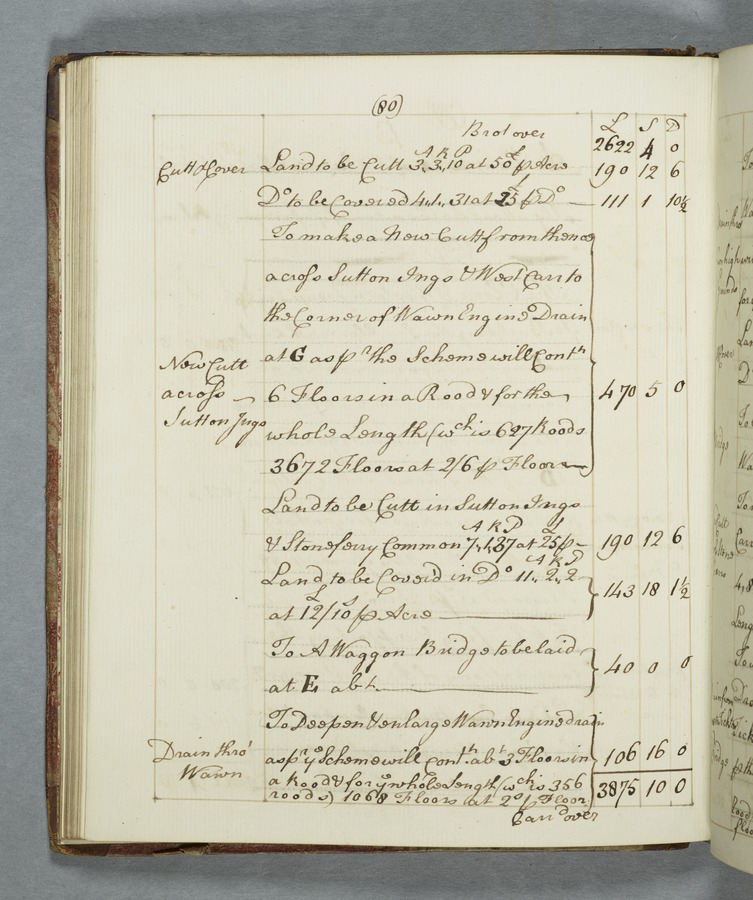 (80)
Brot over
L S D
2622 4 0
Cutt & Cover Land to be Cutt 3,,3,,10 at 50 p Acre 190 12 6
A R P L
Do to be Covered 4,,1,,31 at 25 p Do 111 1 10½
To make a New Cutt from thence
across Sutton Ings & West Carr to
the Corner of Wawn Engine Drain
New Cutt at G as pr the Scheme will Conth
across 6 Floors in a Rood & for the 470 5 0
Sutton Ings whole Length (wch is 627 Roods
3672 Floors at 2/6 p Floor
Land to be Cutt in Sutton Ings
A R P L
& Stoneferry Common 7,,1,,37 at 25 p 190 12 6
A R P
Land to be Coverd in Do 11,,2,,2 143 18 1½
L S
at 12/10 p Acre
To A Waggon Bridge to be laid 40 0 0
at E abt
To Deepen & enlarge Wawn Engine drain
Drain thro' as pr ye Scheme will Conth abt 3 Floors in 106 16 0
Wawn a Rood & for ye whole Length (wch is 356
roods) 1068 Floors at 2s p Floor 3875 10 0
Carrd over